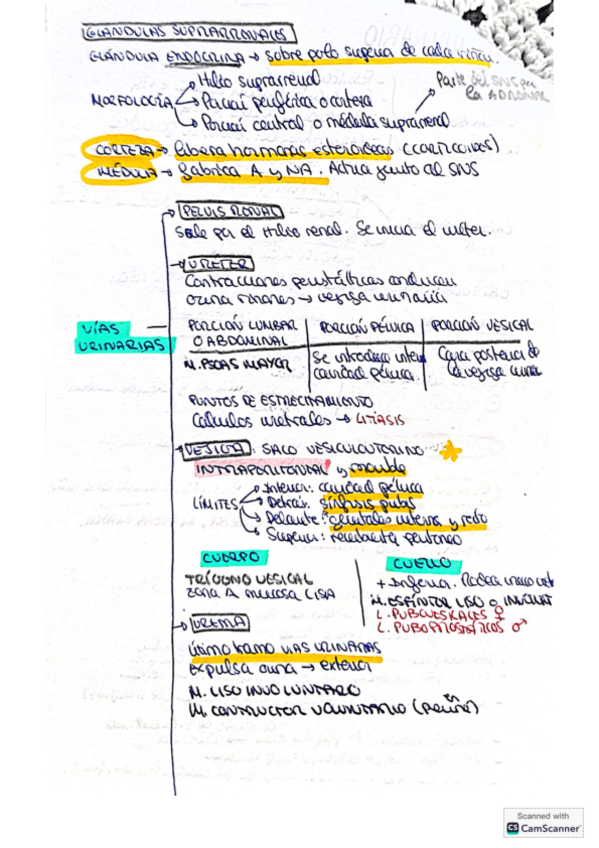 GLÁNDULAS SUPRARRENALES
GLÁNDULA ENDOCRINA → sobre polo superior de cada riñón.
MORFOLOGÍA → Hilio suprarrenal
→ Porción periférica o corteza
→ Porción central o médula suprarrenal
Parte del SNS por la ADRENAL
CORTEZA → libera hormonas esteroideas (CORTICOIDES)
MÉDULA → fabrica A y NA. Actúa junto al SNS
VÍAS URINARIAS
PELVIS RENAL
Sale por el Hilio renal. Se inicia el uréter.
URÉTER
Contracciones peristálticas conducen
orina riñones → vejiga urinaria
PORCIÓN LUMBAR O ABDOMINAL | PORCIÓN PÉLVICA | PORCIÓN VESICAL
M. PSOAS MAYOR | Se introduce cavidad pélvica. | Cara posterior de la vejiga
PUNTOS DE ESTRECHAMIENTO
Cálculos ureterales → LITIASIS
VEJIGA: SACO
INTRAPERITONEAL y
LÍMITES → Inferior: cavidad pélvica
→ Detrás: sínfisis pubis
→ Delante: genitales internos y recto
→ Superior: peritoneo
CUERPO
TRÍGONO VESICAL
ZONA Δ MUCOSA LISA
CUELLO
+ Inferior. Rodea
M. ESFÍNTER LISO O
L. PUBOVESICALES ♀
L. PUBOPROSTÁTICOS ♂
URETRA
Último tramo VÍAS URINARIAS
Expulsa orina → exterior
M. LISO INVOLUNTARIO
M. CONSTRUCTOR VOLUNTARIO
Scanned with
CS CamScanner